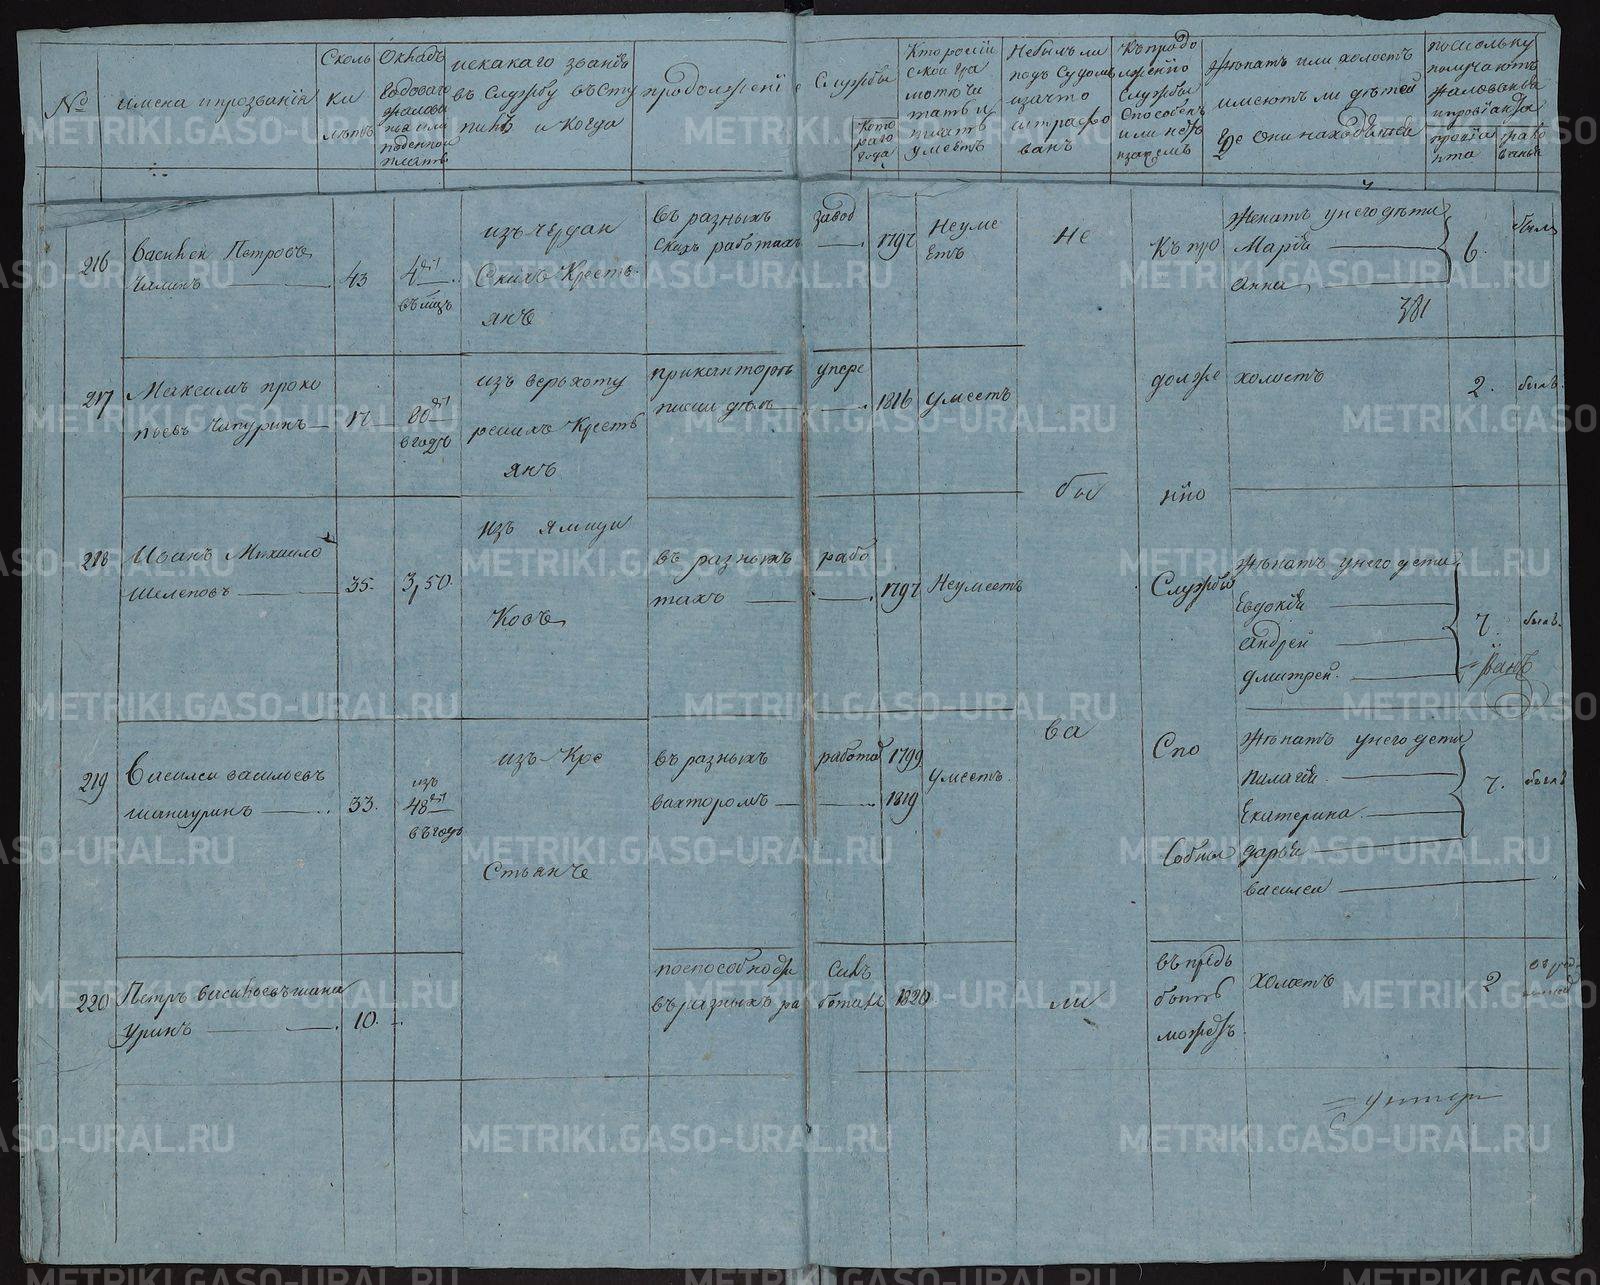 №
имена и прозвании
Сколь
ки
лѣтъ
Окладъ
годоваго
жалова
нья или
поденной
платы
ис какаго званія
въ службу всту
пилъ и когда
продолжені е службы
кото
раго
года
Кто росій
ской гра
моте чи
тать и
писать
умѣетъ
Небылъ ли
подъ судомъ
и за что
штрафо
ванъ
Къ продо
лженію
службы
способенъ
или нетъ
и зачемъ
Женатъ или холостъ
имеютъ ли дѣтей
где они находятца
поскольку
получаютъ
жалованья
и провіанта
провіа
нта
216
Василей Петровъ
Чалинъ
43
4
въ мцъ
изъ чердын
скихъ Кресть
янъ
въ разныхъ завод
скихъ работахъ
1797
Неуме
етъ
не
Къ про
Женатъ у него дѣти
Марья
Анна
6.
былъ
381
217
Максимъ проко
пьевъ Чапуринъ
17
80
в годъ
изъ верьхоту
рскихъ Кресть
янъ
при канторѣ у пере
писки дѣлъ
1816
умеетъ
долже
холостъ
2.
былъ
218
Иванъ Михайло
Шелеповъ
35.
3,50
изъ ямщи
ковъ
въ разныхъ рабо
тахъ
1797
Неумеетъ
бы
нію
службы
Женатъ у него дети
Евдокия
андрей
дмитрей.
7.
былъ.
Иванъ
219
Василей васильевъ
шанауринъ
33.
изъ
48
въ годъ
изъ Кре
стьянъ
въ разныхъ работа
вахторомъ
1799
1819
умеетъ.
ва
спо
собны
Женатъ у него дети
Палагия
Екатерина
дарья
василей
7.
былъ
220
Петръ васильевъ шана
уринъ
10.
по способноси
въ разныхъ ра ботахъ
1820
ли
въ предь
быть
можетъ
холостъ
2
METRIKI.GASO-URAL.RU